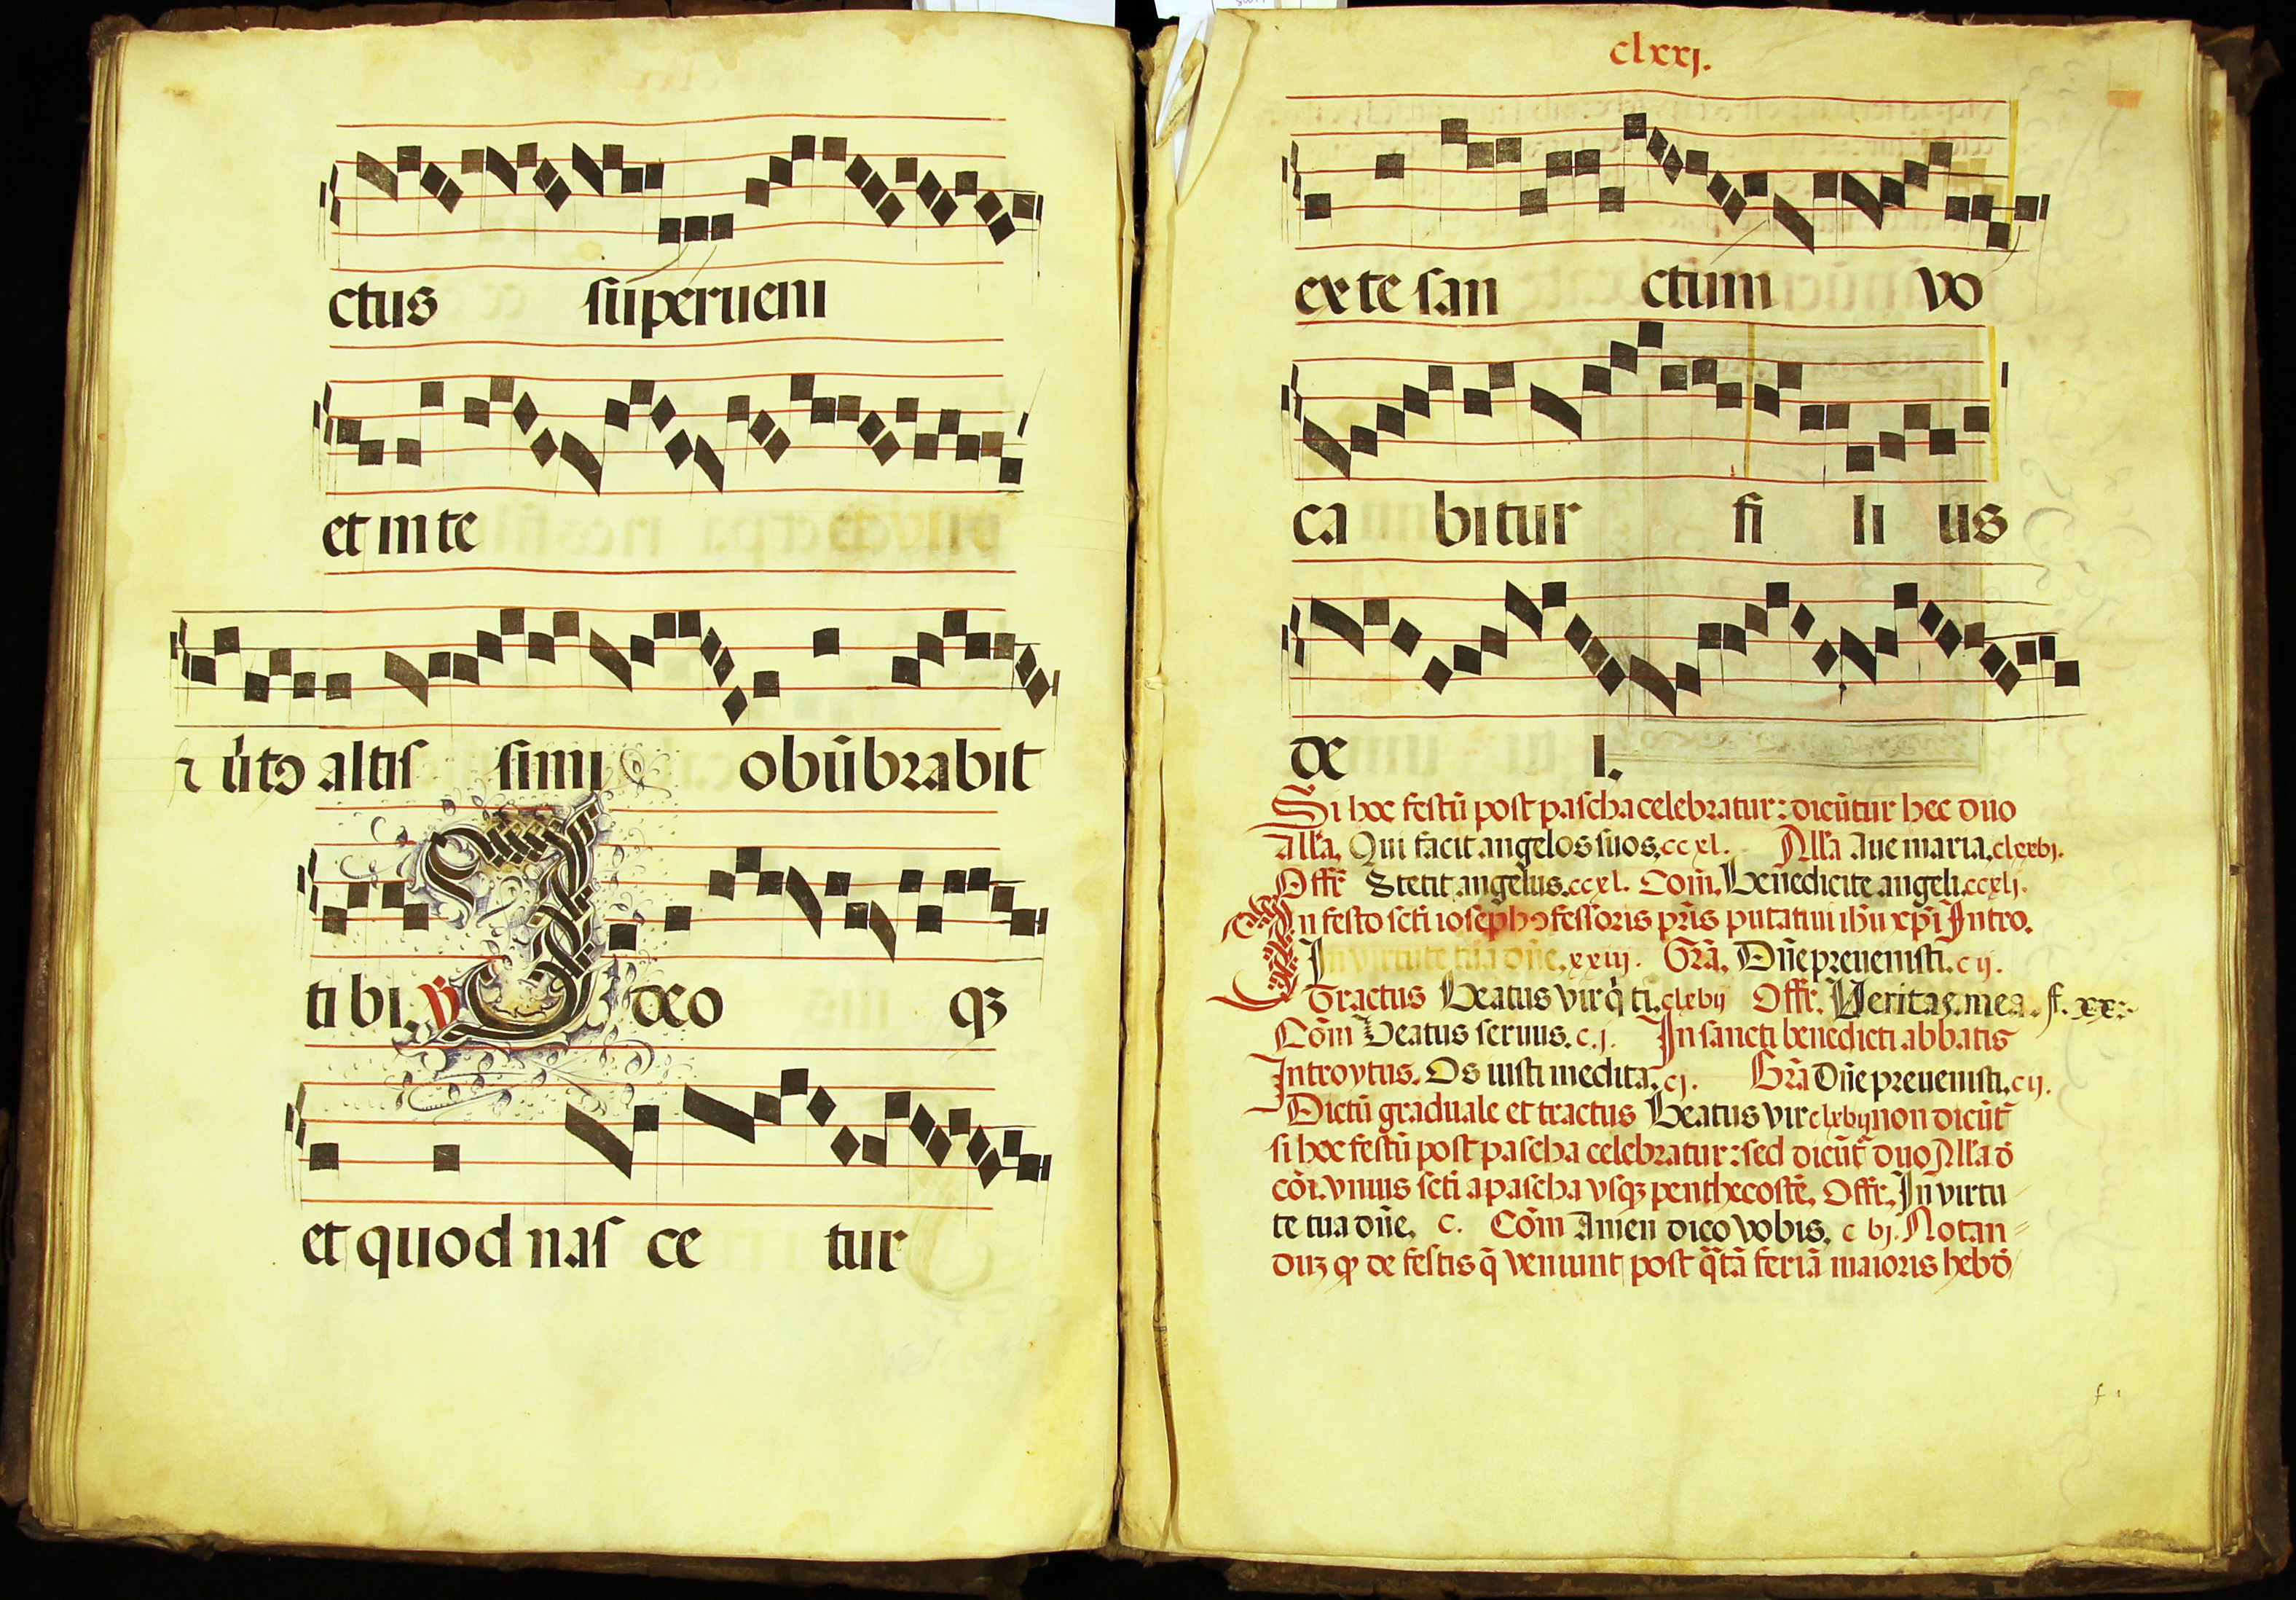 ctus sup̄erueni
et in te
⁊ v̓tꝰ altis simi obūbrabit
ti bi. ℣ Ideo qꝫ
et quod nas ce tur
clxxj.
ex te san ctum vo
ca bitur fi li us
de i.
Si hoc festū post pascha celebratur: dicūtur hec duo
all'a. Qui facit angelos suos. ccxl. All'a Aue maria. clxxbj.
Offr̄ Stetit angelus. ccxl. Com̄. Benedicite angeli. ccxlj.
In festo scti ioseph ꝯfessoris pr̄is putatiui ihū xp̄i Intro.
In virtute tua dn̄e. xxiij. Gra. Dn̄e preuenisti. c ij.
Tractus Beatus vir q̄ ti. clxbij Offr̄. Veritas mea. f. xx:
Com̄ Beatus seruus. c.j. In sancti benedicti abbatis
Introytus. Os iusti medita. cj. Gra Dn̄e preuenisti. cij.
Dictū graduale et tractus Beatus vir clxbij non dicūt̄
si hoc festū post pascha celebratur: sed dicūt̄ duo All'a d̄
cōi. vnius scti a pascha vsqꝫ penthecostē. Offr̄. In virtu
te tua dn̄e. c. Com̄ Amen dico vobis. c bj. Notan=
duꝫ ꝙ de festis q̄ veniunt post q̄tā feriā maioris hebd̄o